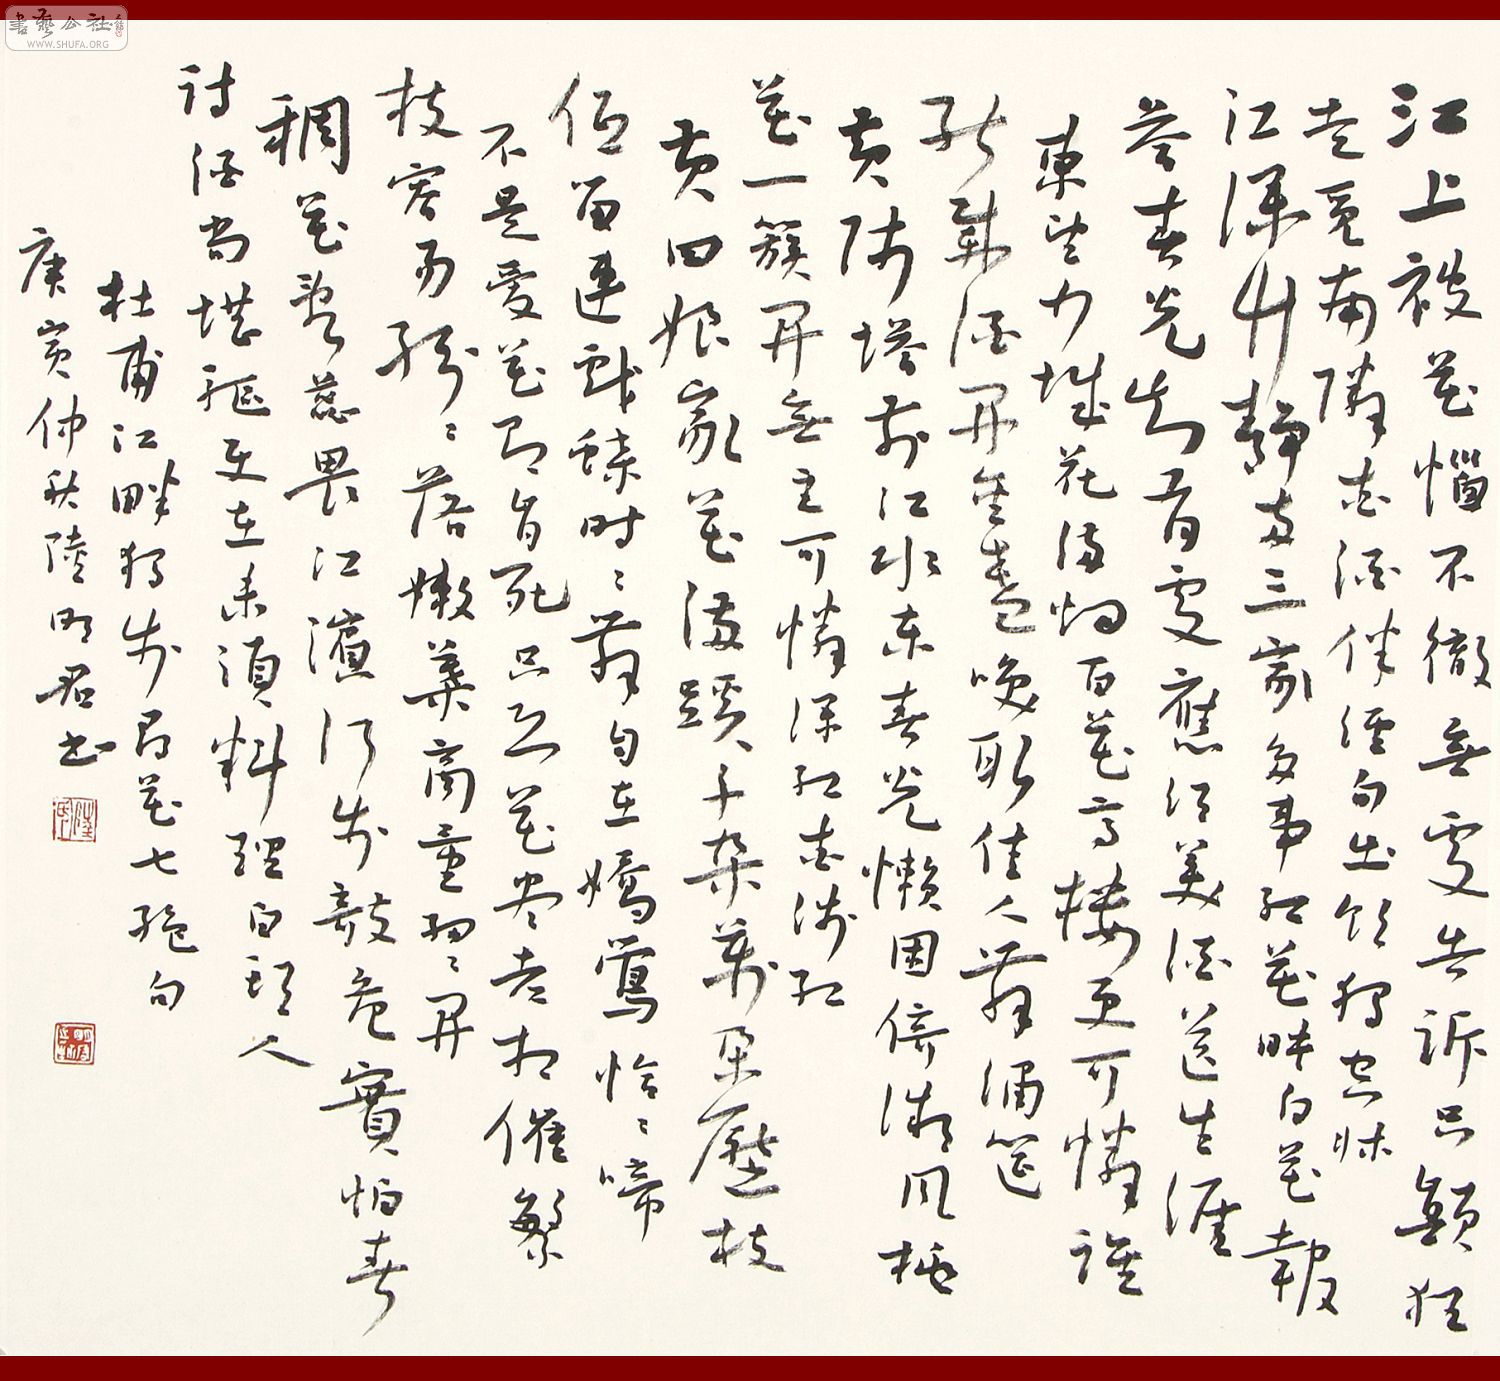 書藝公社
WWW.SHUFA.ORG
江上被花惱不徹無處告訴只顛狂
走覓南隣愛酒伴經旬出飲獨空牀
江深竹靜兩三家多事紅花映白花報
答春光知有處應須美酒送生涯
東望少城花滿烟百花高樓更可憐誰
能載酒開金盞喚取佳人舞繡筵
黃師塔前江水東春光懶困倚微風桃
花一簇開無主可憐深紅愛淺紅
黃四娘家花滿蹊千朵萬朵壓枝
低留連戲蝶時〻舞自在嬌鶯恰〻啼
不是愛花即肯死只恐花盡老相催繁
枝容易紛〻落嫩葉商量細〻開
稠花亂蕊畏江濱行步欹危實怕春
詩酒尚堪驅使在未須料理白頭人
杜甫江畔獨步尋花七絕句
庚寅仲秋陸明君書